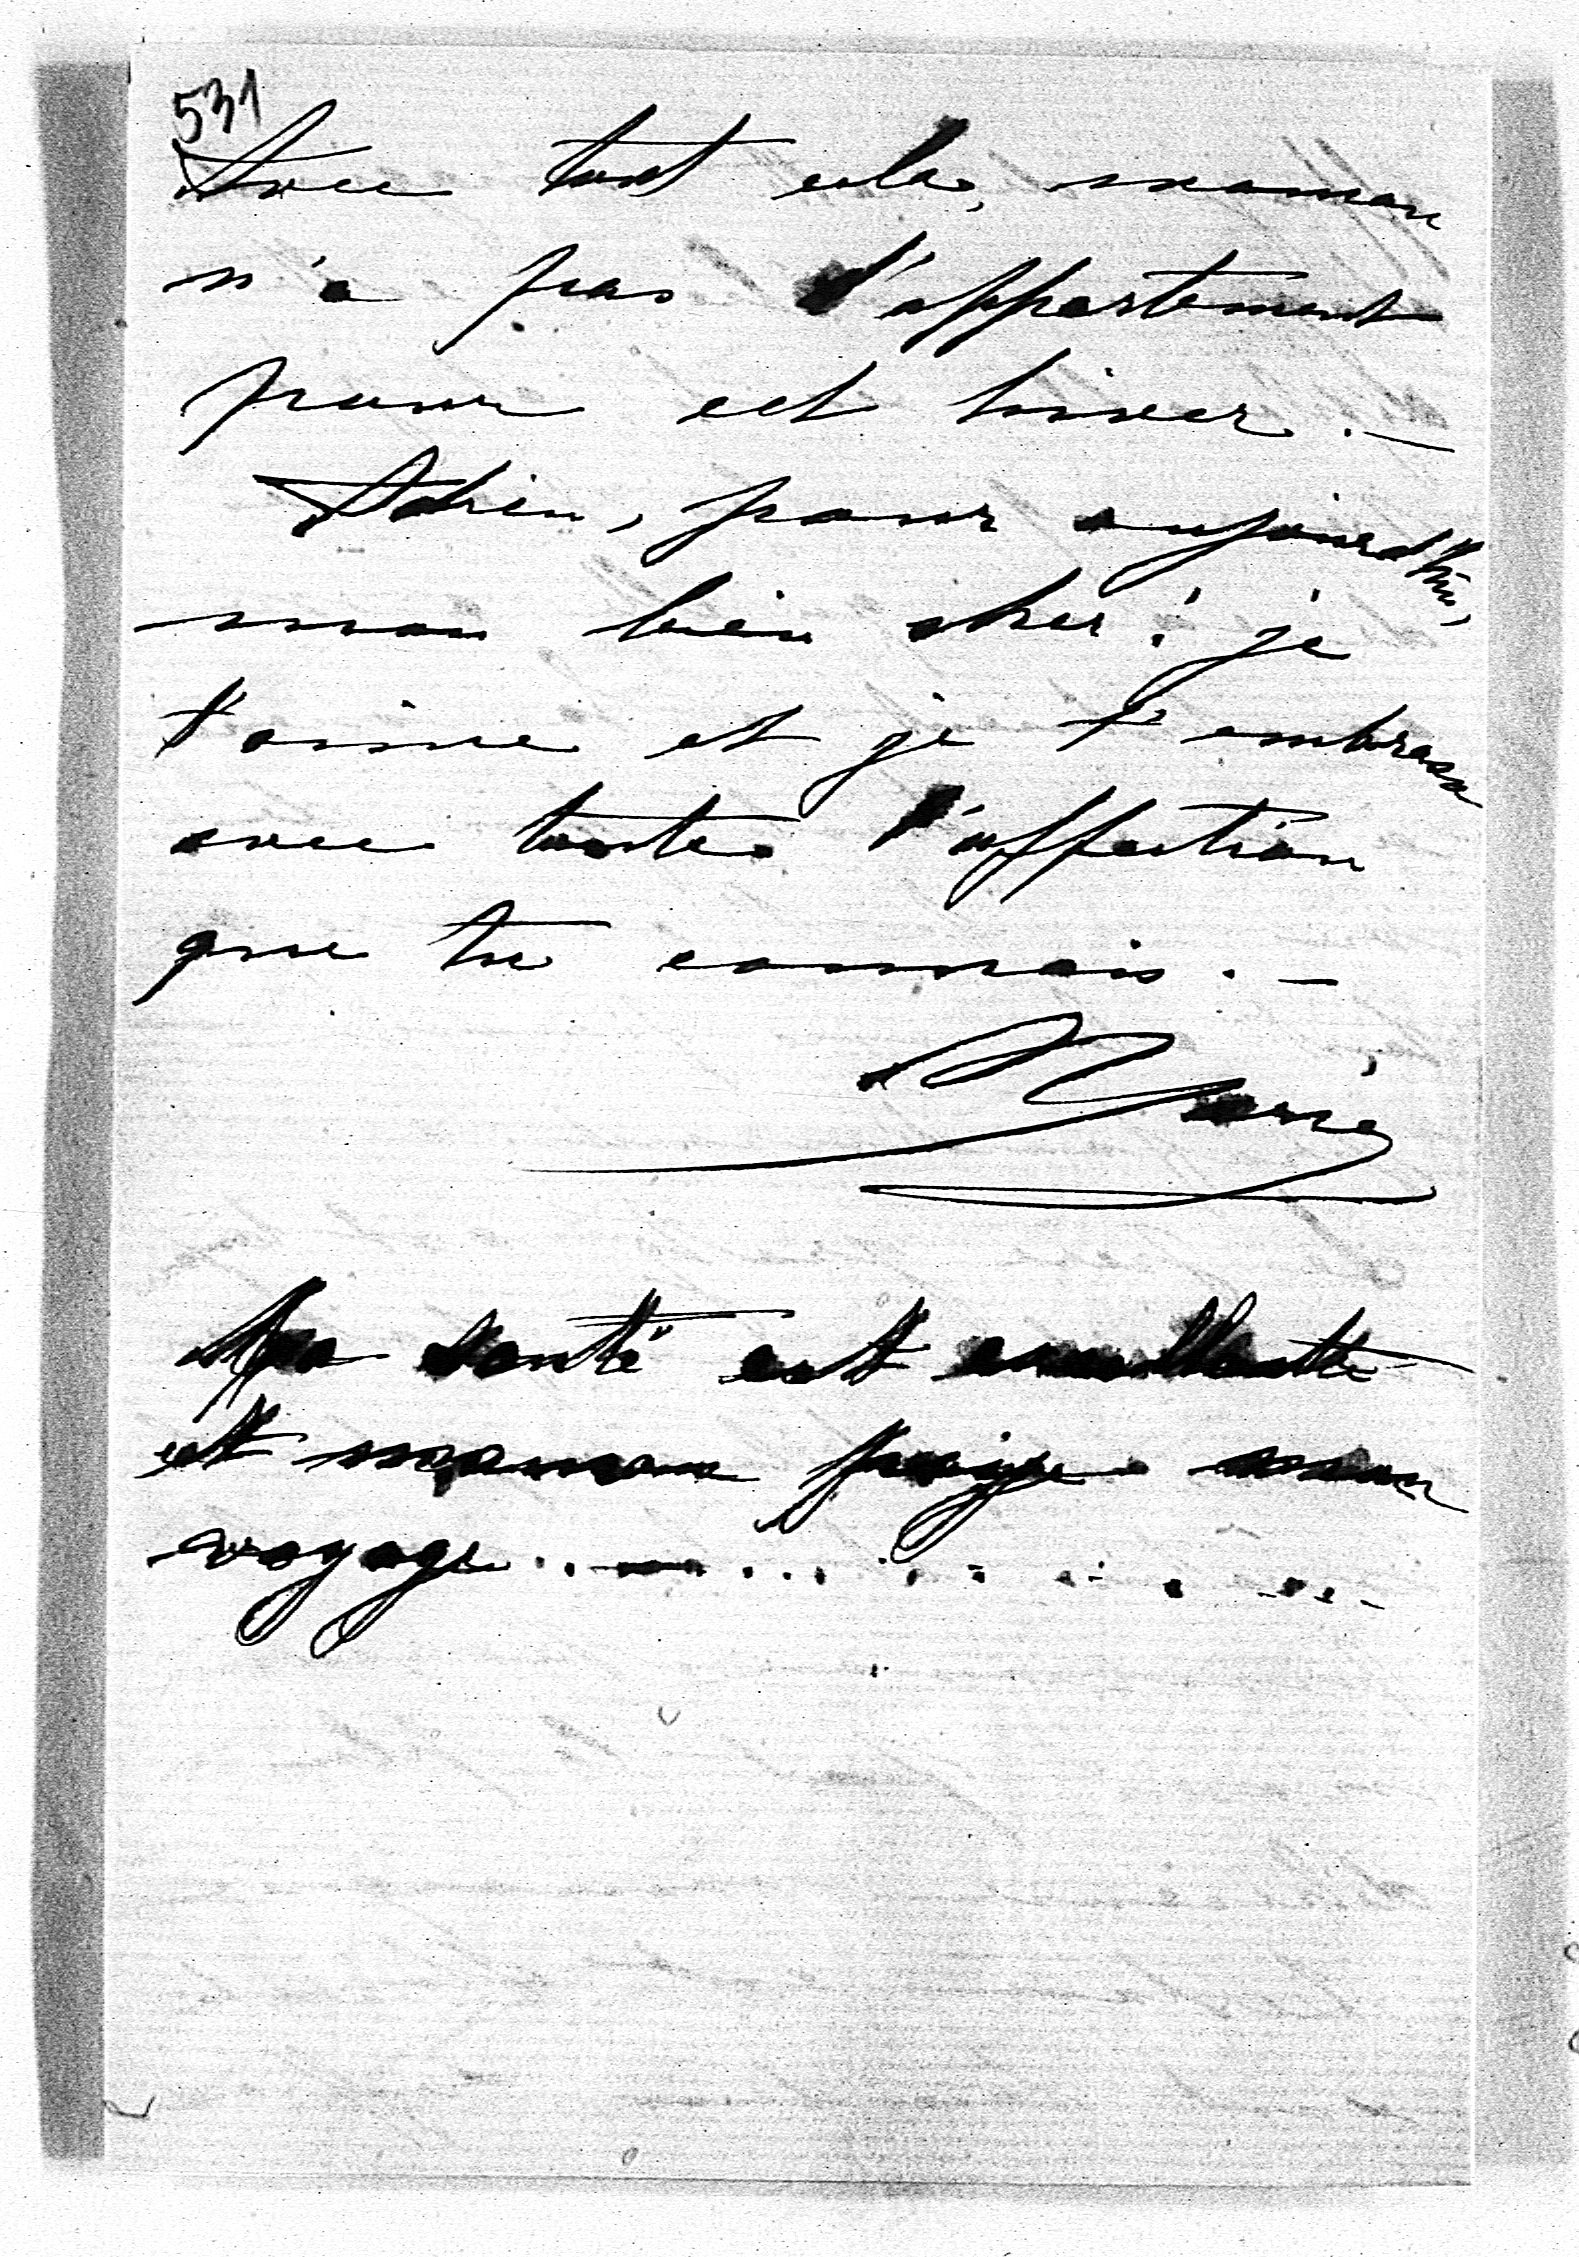 531
Avec tout cela, maman
n'a pas d'appartement
pour cet hiver. —
Adieu, pour aujourd'hui,
mon bien cher ! je
t'aime et je t'embrasse
avec toute l'affection
que tu connais. —
Marie
Ma santé est excellente
et maman paye mon
voyage